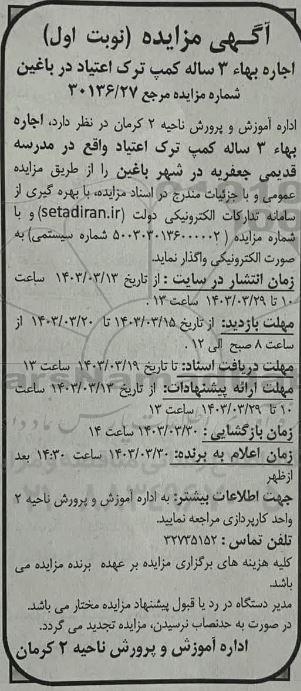 آگهی مزایده (نوبت اول)
اجاره بهاء ۳ ساله کمپ ترک اعتیاد در باغین
شماره مزایده مرجع ۳۰۱۳۶/۲۷
اداره آموزش و پرورش ناحیه ۲ کرمان در نظر دارد، اجاره
بهاء ۳ ساله کمپ ترک اعتیاد واقع در مدرسه
قدیمی جعفریه در شهر باغین را از طریق مزایده
عمومی و با جزئیات مندرج در اسناد مزایده، با بهره گیری از
سامانه تدارکات الکترونیکی دولت (setadiran.ir) و با
شماره مزایده (۵۰۰۳۰۳۰۱۳۶۰۰۰۰۰۲ شماره سیستمی) به
صورت الکترونیکی واگذار نماید.
زمان انتشار در سایت : از تاریخ ۱۴۰۳/۰۳/۱۳ ساعت
۱۰ تا ۱۴۰۳/۰۳/۲۹ ساعت ۱۳ .
مهلت بازدید: از تاریخ ۱۴۰۳/۰۳/۱۵ تا ۱۴۰۳/۰۳/۲۰ از
ساعت ۸ صبح الی ۱۲ .
مهلت دریافت اسناد: تا تاریخ ۱۴۰۳/۰۳/۱۹ ساعت ۱۳
مهلت ارائه پیشنهادات: از تاریخ ۱۴۰۳/۰۳/۱۳ ساعت
۱۰ تا ۱۴۰۳/۰۳/۲۹ ساعت ۱۳
زمان بازگشایی : ۱۴۰۳/۰۳/۳۰ ساعت ۱۴
زمان اعلام به برنده: ۱۴۰۳/۰۳/۳۰ ساعت ۱۴:۳۰ بعد
ازظهر
جهت اطلاعات بیشتر: به اداره آموزش و پرورش ناحیه ۲
واحد کارپردازی مراجعه نمایید.
تلفن تماس : ۳۲۷۳۵۱۵۲
کلیه هزینه های برگزاری مزایده بر عهده برنده مزایده می
باشد.
مدیر دستگاه در رد یا قبول پیشنهاد مزایده مختار می باشد.
در صورت به حدنصاب نرسیدن، مزایده تجدید می گردد.
اداره آموزش و پرورش ناحیه ۲ کرمان